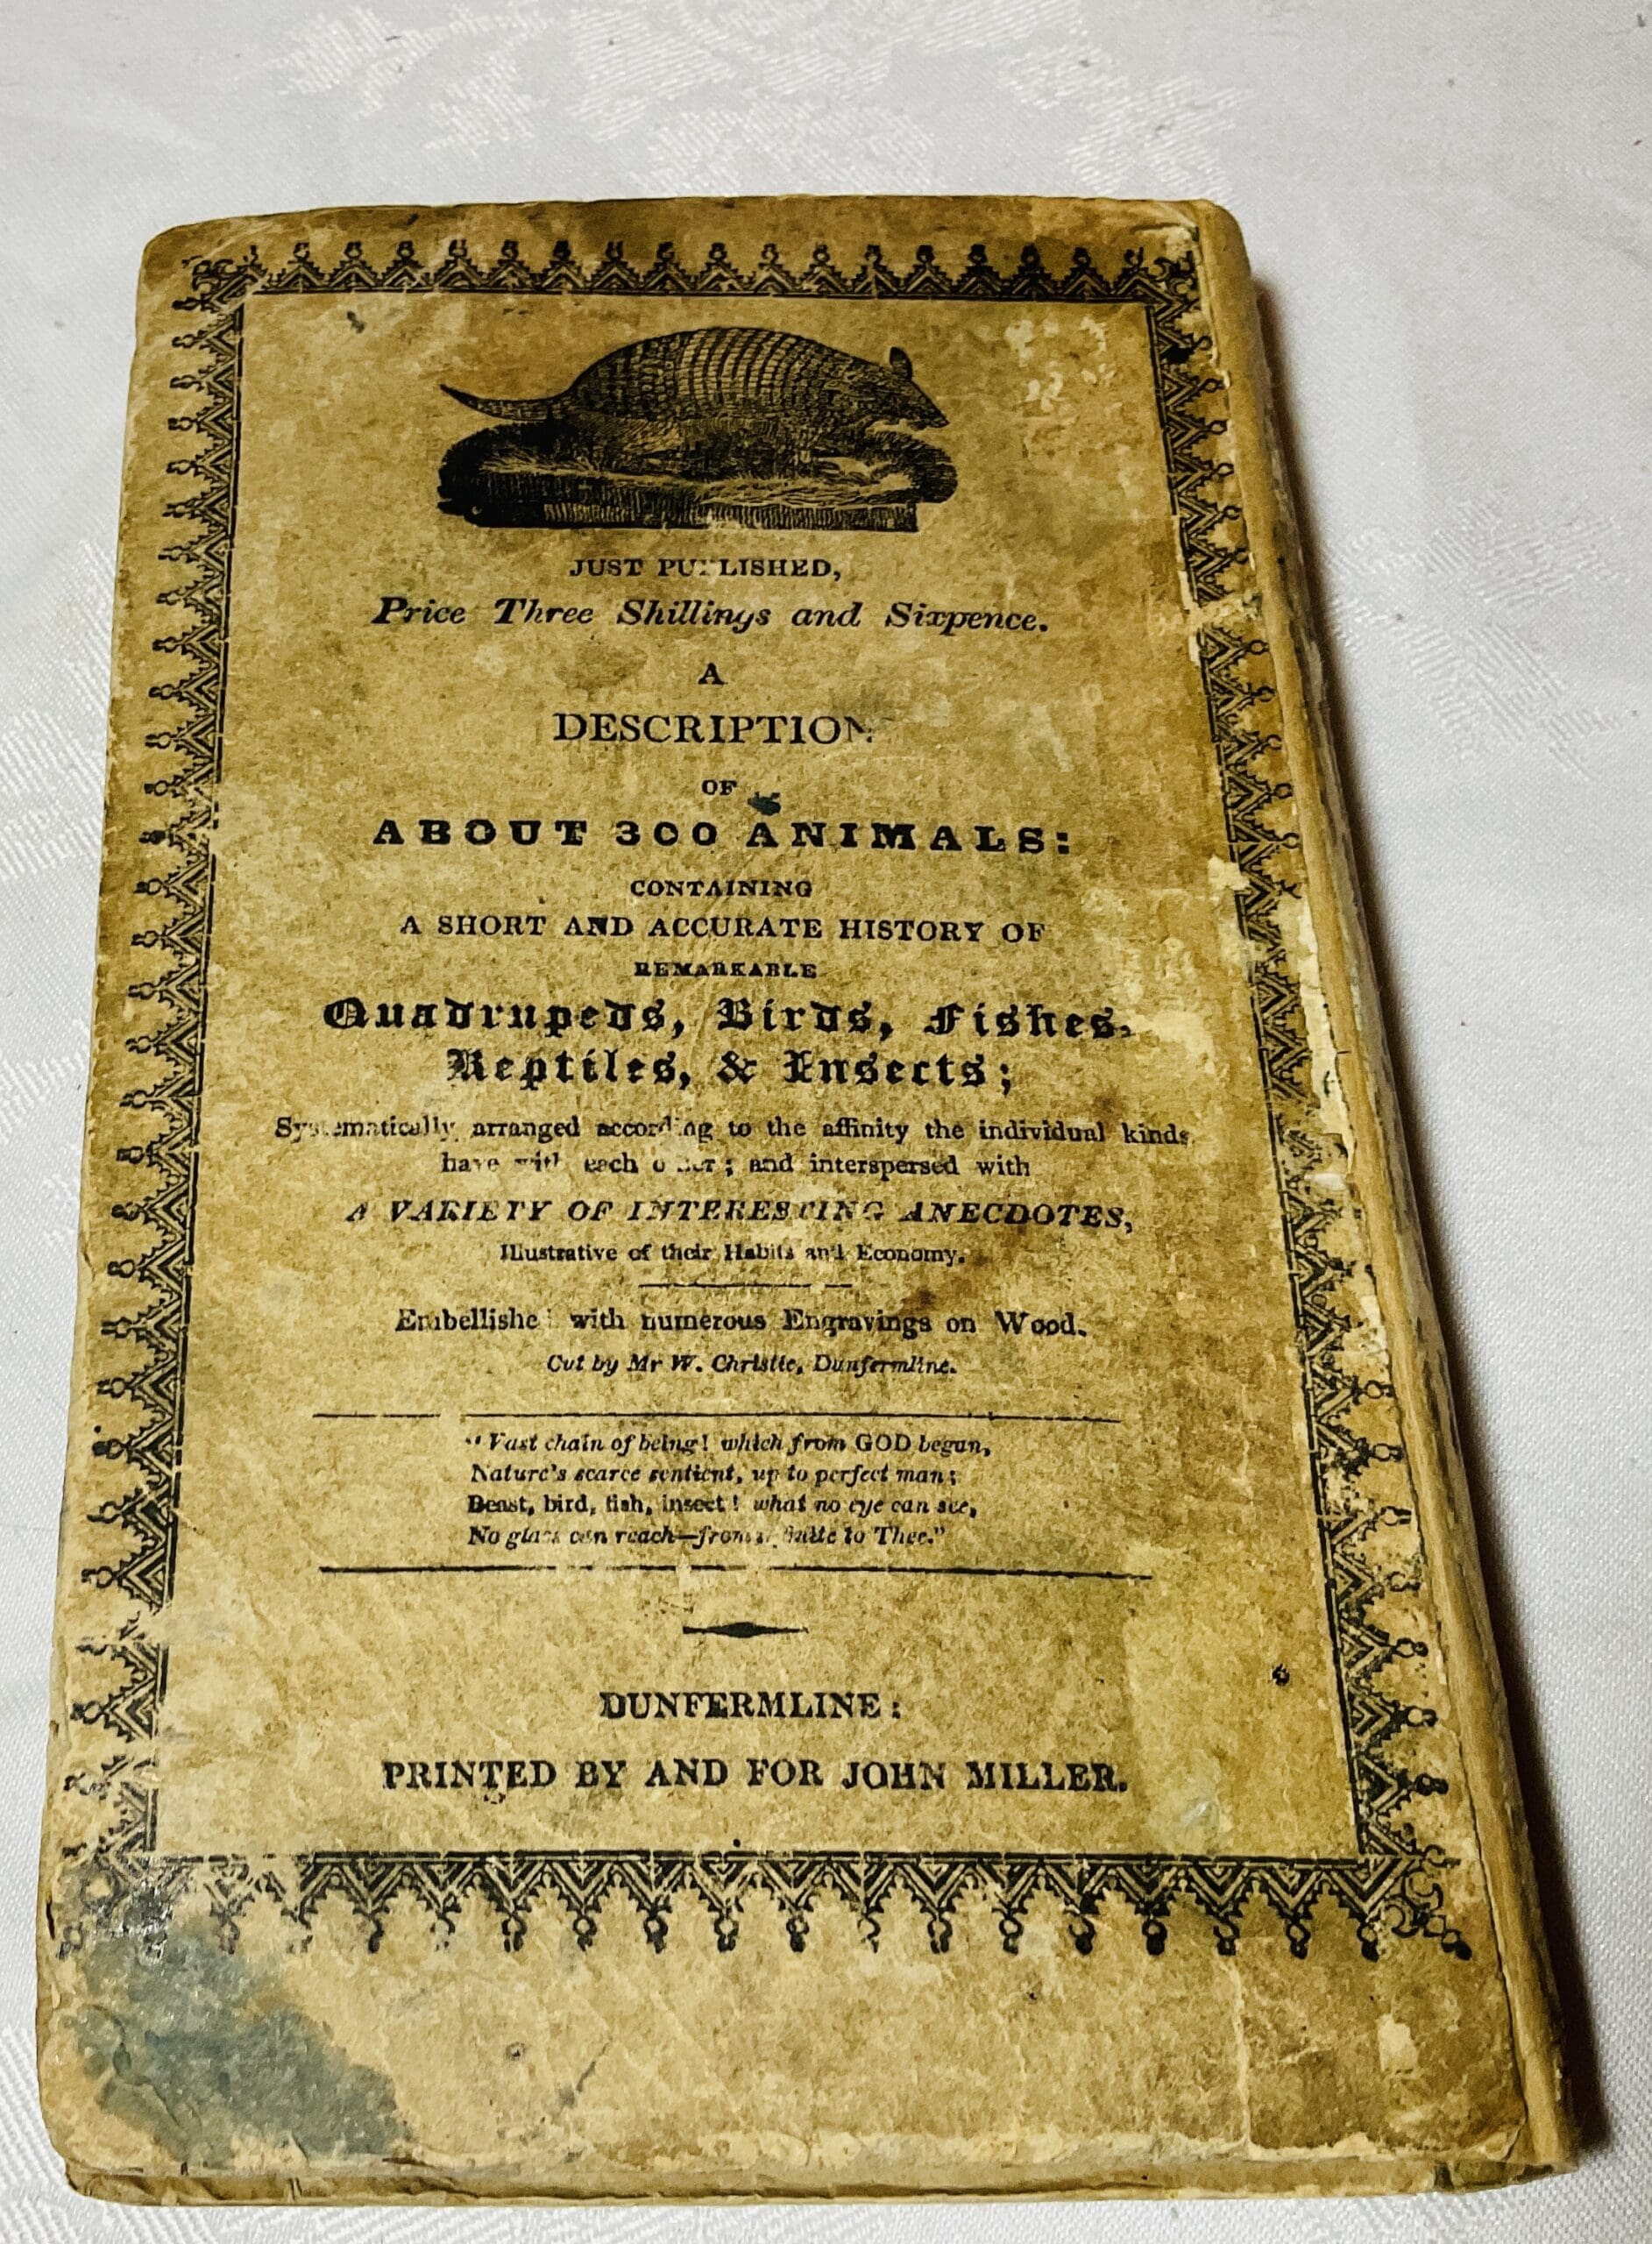 JUST PUBLISHED,
Price Three Shillings and Sixpence.
A
DESCRIPTION
OF
ABOUT 300 ANIMALS:
CONTAINING
A SHORT AND ACCURATE HISTORY OF
REMARKABLE
Quadrupeds, Birds, Fishes,
Reptiles, & Insects;
Systematically arranged according to the affinity the individual kinds
have with each other; and interspersed with
A VARIETY OF INTERESTING ANECDOTES,
Illustrative of their Habits and Economy.
Embellished with numerous Engravings on Wood.
Cut by Mr W. Christie, Dunfermline.
"Vast chain of being! which from GOD began,
Nature's scarce sentient, up to perfect man;
Beast, bird, fish, insect! what no eye can see,
No glass can reach—from to Thee."
DUNFERMLINE:
PRINTED BY AND FOR JOHN MILLER.